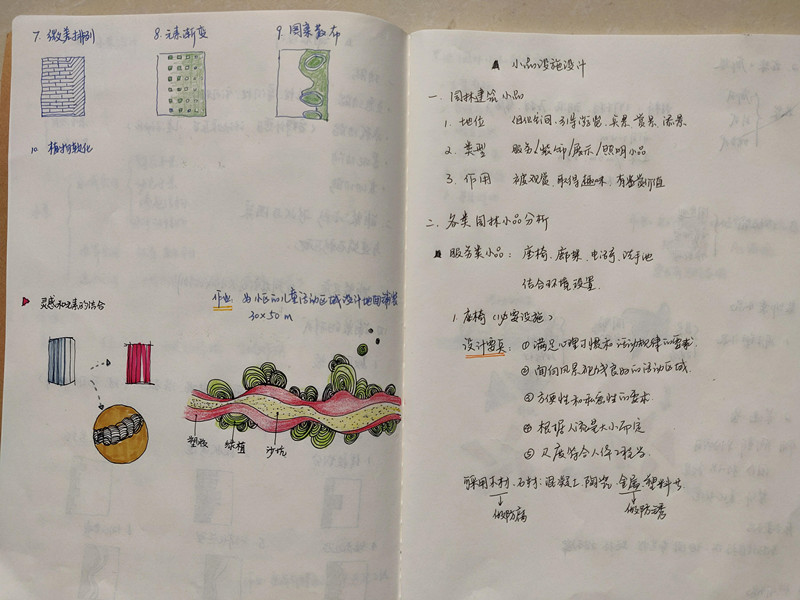 7. 微差排列
8. 元素渐变
9. 图案散布
10. 植物软化
灵感和元素的结合
作业 为小区的儿童活动区域设计地面铺装
30×50 m
塑胶
绿植
沙坑
小品设施设计
一. 园林建筑小品
1. 地位 组织空间、引导游览、点景、赏景、添景
2. 类型 服务/装饰/展示/照明小品
3. 作用 被观赏、取得趣味、有鉴赏价值
二. 各类园林小品分析
服务类小品: 座椅、廊架、电话亭、洗手池
结合环境设置.
1. 座椅(必要设施)
设计要点: ①满足心理习惯和活动规律的要求.
②面向风景视线良好的活动区域.
③方便性和私密性的要求.
④根据人流量大小而定
⑤尺度符合人体工程学.
可采用木材、石材、混凝土、陶瓷、金属、塑料等.
做防腐
做防锈